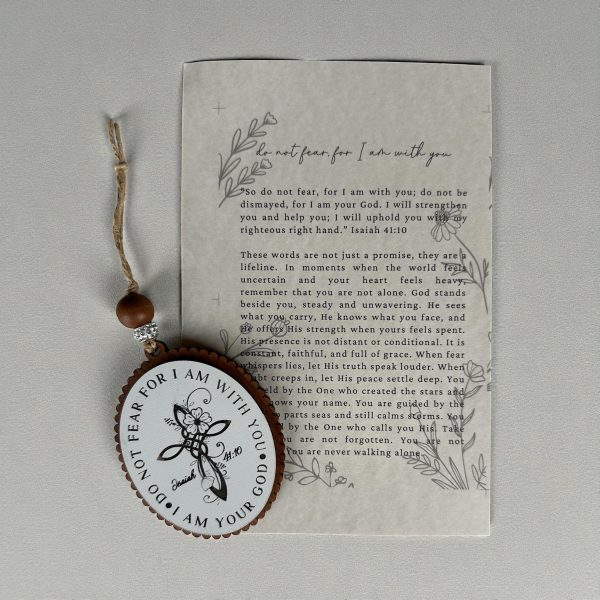 do not fear, for I am with you
"So do not fear, for I am with you; do not be
dismayed, for I am your God. I will strengthen
you and help you; I will uphold you with my
righteous right hand." Isaiah 41:10
These words are not just a promise, they are a
lifeline. In moments when the world feels
uncertain and your heart feels heavy,
remember that you are not alone. God stands
beside you, steady and unwavering. He sees
what you carry, He knows what you face, and
He offers His strength when yours feels spent.
His presence is not distant or conditional. It is
constant, faithful, and full of grace. When fear
whispers lies, let His truth speak louder. When
creeps in, let His peace settle deep. You
by the One who created the stars and
knows your name. You are guided by the
parts seas and still calms storms. You
by the One who calls you His. Take
not forgotten. You are not
You are never walking alone
DO NOT FEAR FOR I AM WITH YOU
I AM YOUR GOD
Isaiah 41:10